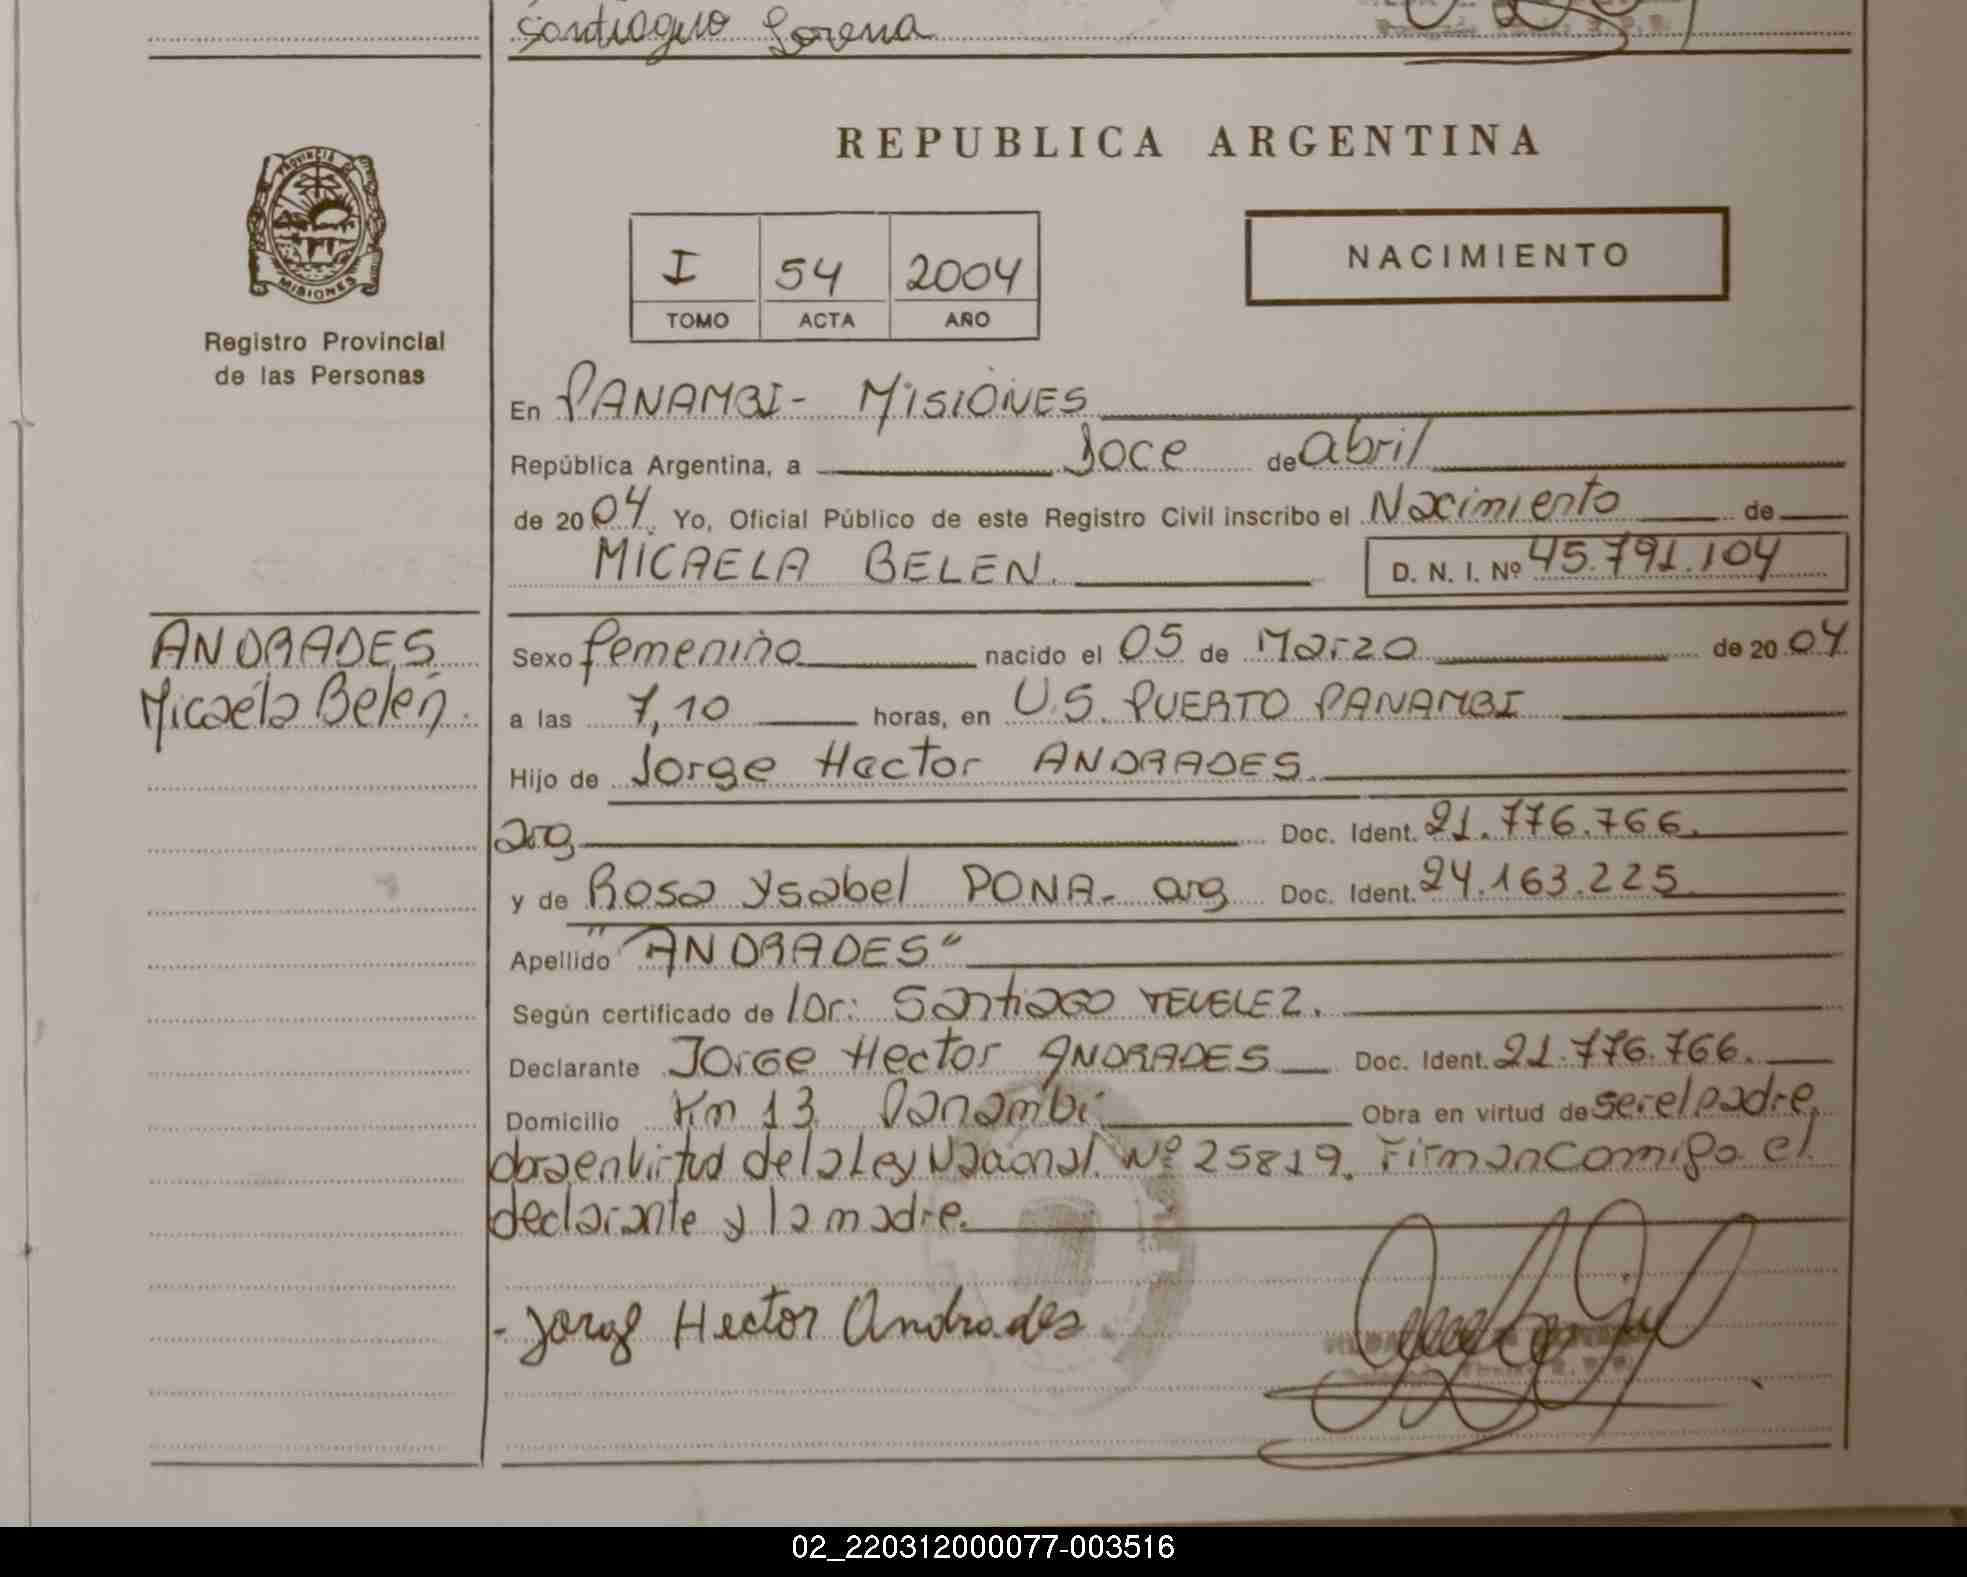 Santiaguo Lorena
REPUBLICA ARGENTINA
PROVINCIA DE
MISIONES
Registro Provincial
de las Personas
I 54 2004
TOMO ACTA AÑO
NACIMIENTO
En PANAMBI - MISIONES
República Argentina, a Doce de abril
de 2004. Yo, Oficial Público de este Registro Civil inscribo el Nacimiento de
MICAELA BELEN. D. N. I. Nº 45.791.104
ANDRADES
Micaela Belén.
Sexo femenino nacido el 05 de Marzo de 2004.
a las 7,10 horas, en U.S. PUERTO PANAMBI
Hijo de Jorge Hector ANDRADES.
arg Doc. Ident. 21.776.766.
y de Rosa Ysabel PONA - arg Doc. Ident. 24.163.225
Apellido "ANDRADES"
Según certificado de Dr: Santiago TEVELEZ.
Declarante Jorge Hector ANDRADES Doc. Ident. 21.776.766.
Domicilio Km 13 Panambi Obra en virtud de ser el padre,
obra en virtud de la Ley Nacional Nº 25819. Firman comigo el
declarante y la madre.
- Jorge Hector Andrades
02_220312000077-003516